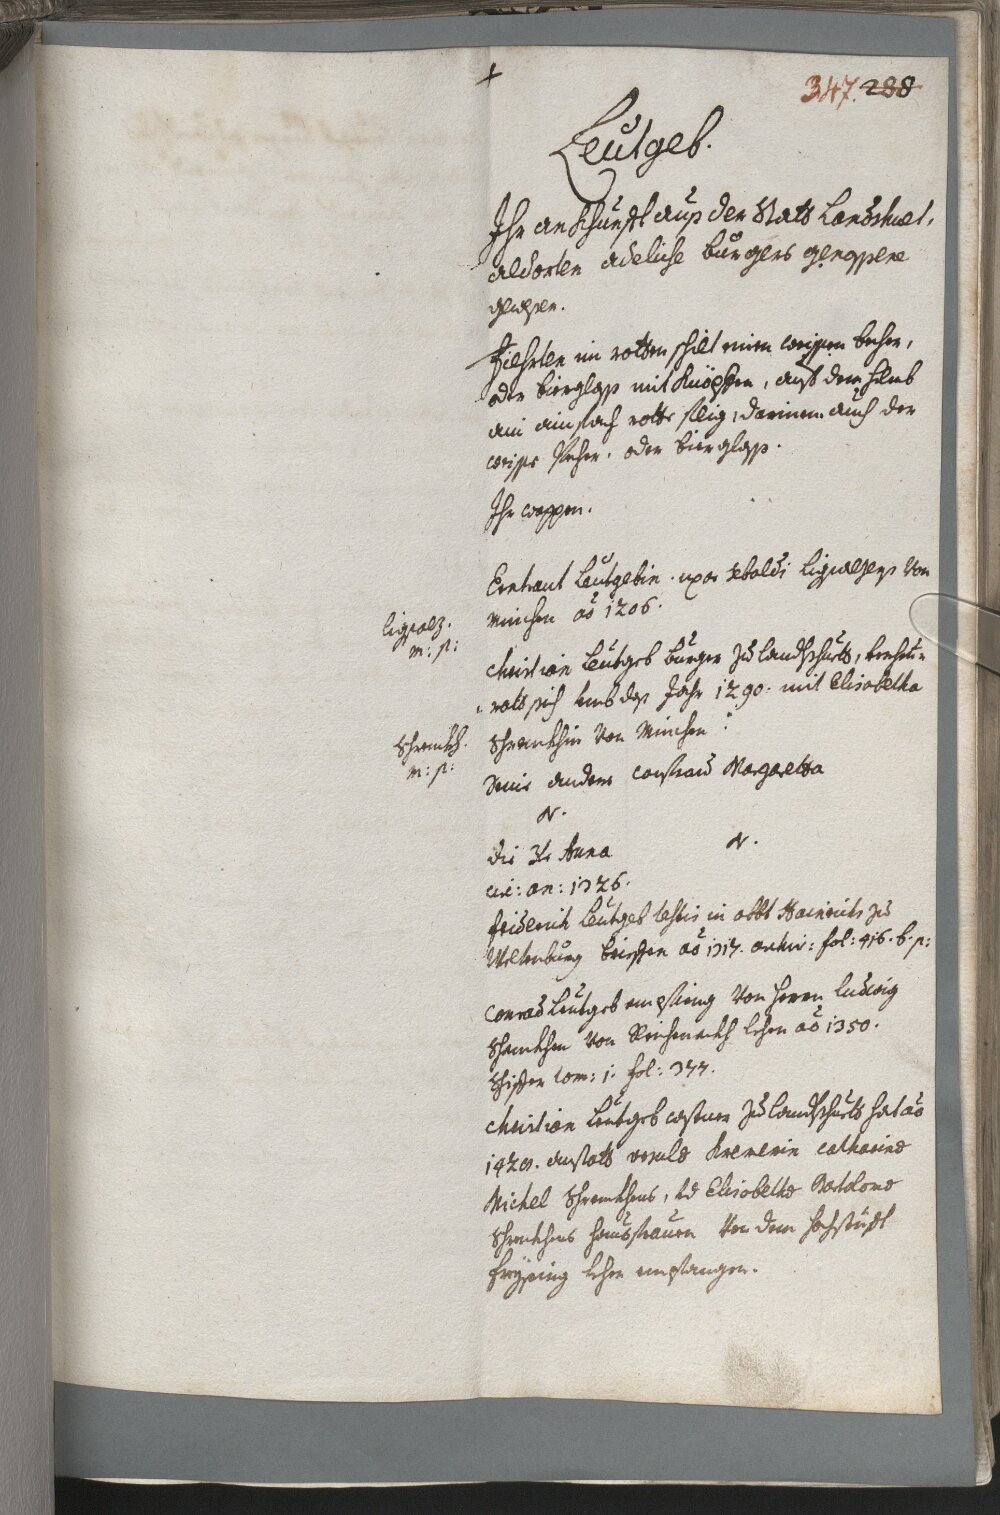 +
347. 288
Leütgeb.
Ihr ankhunft aus der Statt Landshuet,
aldorten adeliche burgers genossene
gewesen.
Fiehrten im rotten schilt einen weissen becher,
oder bierglass mit Knöpfen, auf dem helmb
ain ainfach rotte flig, darinen auch der
weisse becher. oder bierglass.
Ihr wappen.
Erntraut Leütgebin. uxor Seboldi ligsalzens von
München ao 1206.
ligsalz.
m: p:
Christian Leütgeb burger zu landtshuett, verheü-
ratt sich umb das Jahr 1290. mit Elisabetha
Schrenkhin von München.
Schrenkh.
m: p:
Seine andere Margaretha
N.
die 3te Anna N.
circ: an: 1326.
friderich Leütgeb in abbt Hainrichs zu
Weltenburg brieffen ao 1317. fol: 416. b. p:
Conrad Leütgeb empfieng von herrn ludwig
Schenkhen von Reicheneckh lehen ao 1350.
tom: 1. fol: 377.
Christian Leütgeb castner zu landtshuett hat ao
1420. anstatt Catharinae
Michel Schrenkhens, et Elisabethe Bartolome
Schrenkhens hausfrauen von dem hochstüfft
freysing lehen empfangen.